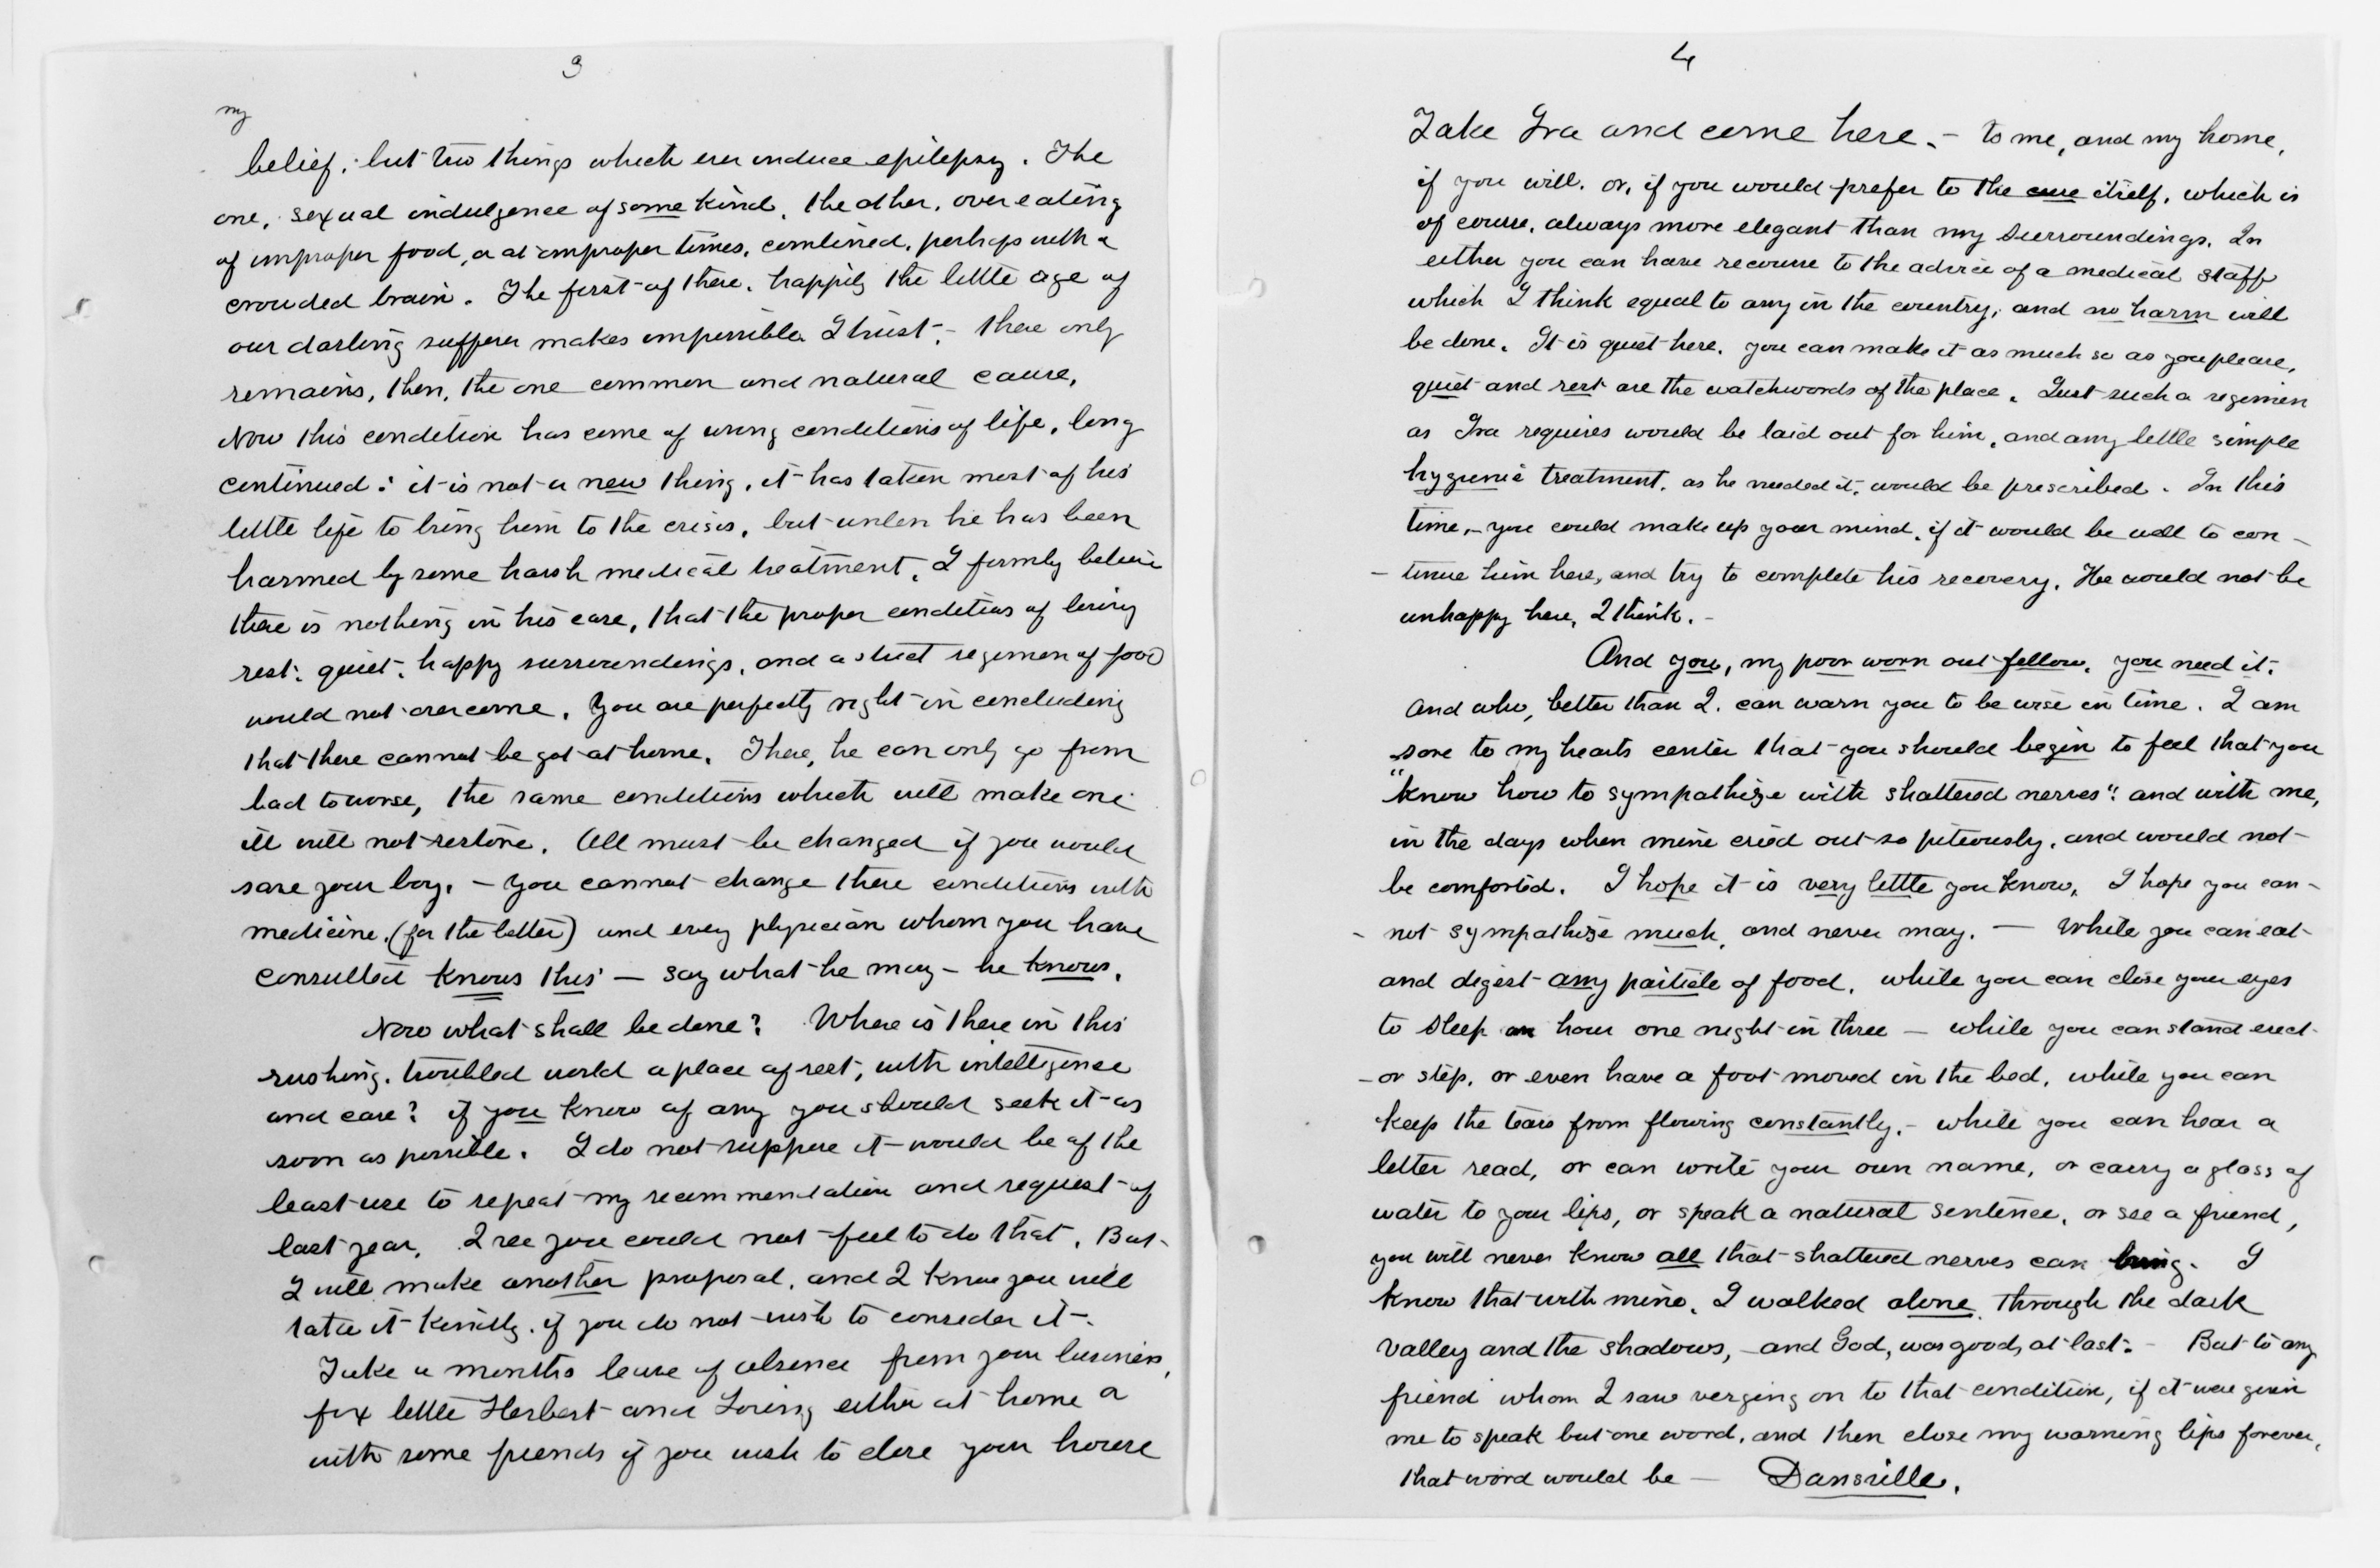 3
my
belief, but two things which ever induce epilepsy. The
one, sexual indulgence of some kind, the other, over eating
of improper food, or at improper times, combined, perhaps with a
crowded brain. The first of these, happily the little age of
our darling sufferer makes impossible I trust,- there only
remains, then, the one common and natural cause,
Now this condition has come of wrong conditions of life, long
continued: it is not a new thing, it has taken most of his
little life to bring him to the crisis, but unless he has been
harmed by some harsh medical treatment, I firmly believe
there is nothing in his case, that the proper conditions of living
rest, quiet, happy surroundings, and a strict regimen of food
would not overcome. You are perfectly right in concluding
that these cannot be got at home. There, he can only go from
bad to worse, the same conditions which will make one
ill will not restore. All must be changed if you would
save your boy. - You cannot change these conditions with
medicine. (for the better) and every physician whom you have
consulted knows this - say what he may - he knows.
Now what shall be done? Where is there in this
rushing, troubled world a place of rest, with intelligence
and care? if you know of any you should seek it as
soon as possible. I do not suppose it would be of the
least use to repeat my recommendation and request of
last year, I see you could not feel to do that. But
I will make another proposal, and I know you will
take it kindly, if you do not wish to consider it.
Take a months leave of absence from your business,
fix little Herbert and Loring either at home or
with some friends if you wish to close your house
4
Take Ira and come here. - to me, and my home,
if you will, or, if you would prefer to the cure itself, which is
of course, always more elegant than my surroundings. In
either you can have recourse to the advice of a medical staff
which I think equal to any in the country, and no harm will
be done. It is quiet here, you can make it as much so as you please,
quiet and rest are the watchwords of the place. Just such a regimen
as Ira requires would be laid out for him, and any little simple
hygienic treatment, as he needed it, would be prescribed. In this
time, - you could make up your mind, if it would be well to con -
- tinue him here, and try to complete his recovery. He would not be
unhappy here, I think. -
And you, my poor worn out fellow, you need it.
And who, better than I, can warn you to be wise in time. I am
sore to my hearts center that you should begin to feel that you
"know how to sympathize with shattered nerves": and with me,
in the days when mine cried out so piteously, and would not
be comforted. I hope it is very little you know, I hope you can -
- not sympathise much, and never may. - While you can eat
and digest any particle of food, while you can close your eyes
to sleep an hour one night in three - while you can stand erect -
- or step, or even have a foot moved in the bed, while you can
keep the tears from flowing constantly. - while you can hear a
letter read, or can write your own name, or carry a glass of
water to your lips, or speak a natural sentence, or see a friend,
you will never know all that shattered nerves can bring. I
know that with mine, I walked alone through the dark
valley and the shadows, - and God, was good, at last. - But to any
friend whom I saw verging on to that condition, if it were given
me to speak but one word, and then close my warning lips forever,
that word would be - Dansville.